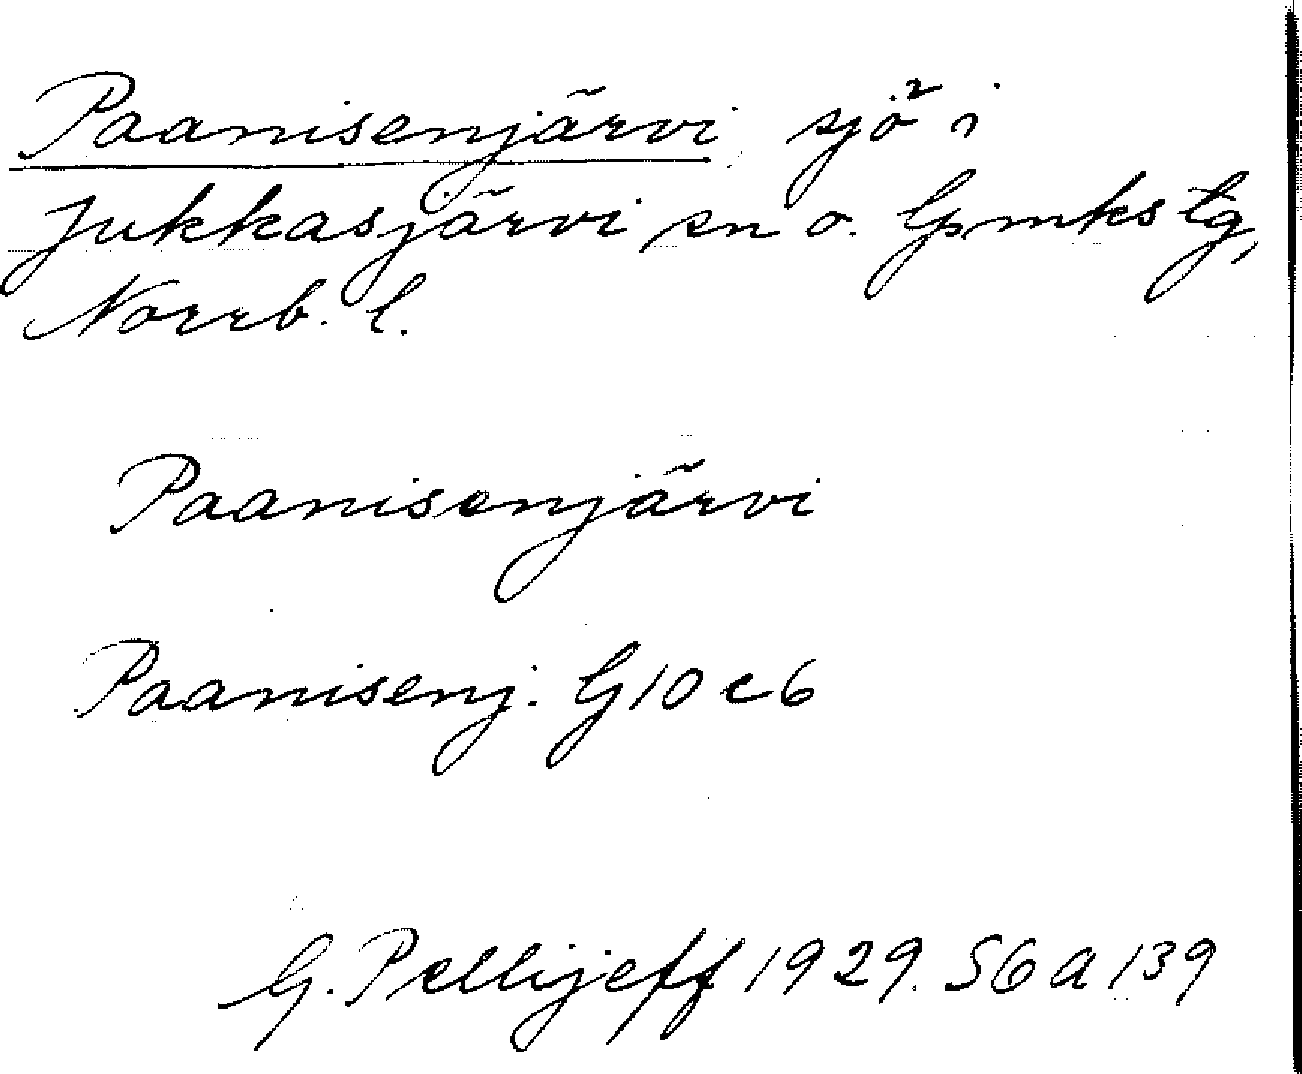 Paanisenjärvi, sjö² i
Jukkasjärvi sn o. Gmks tg,
Norrb. l.
Paanisenjärvi
Paanisenj. G10 c6
G. Pellijeff 1929. S6a 139